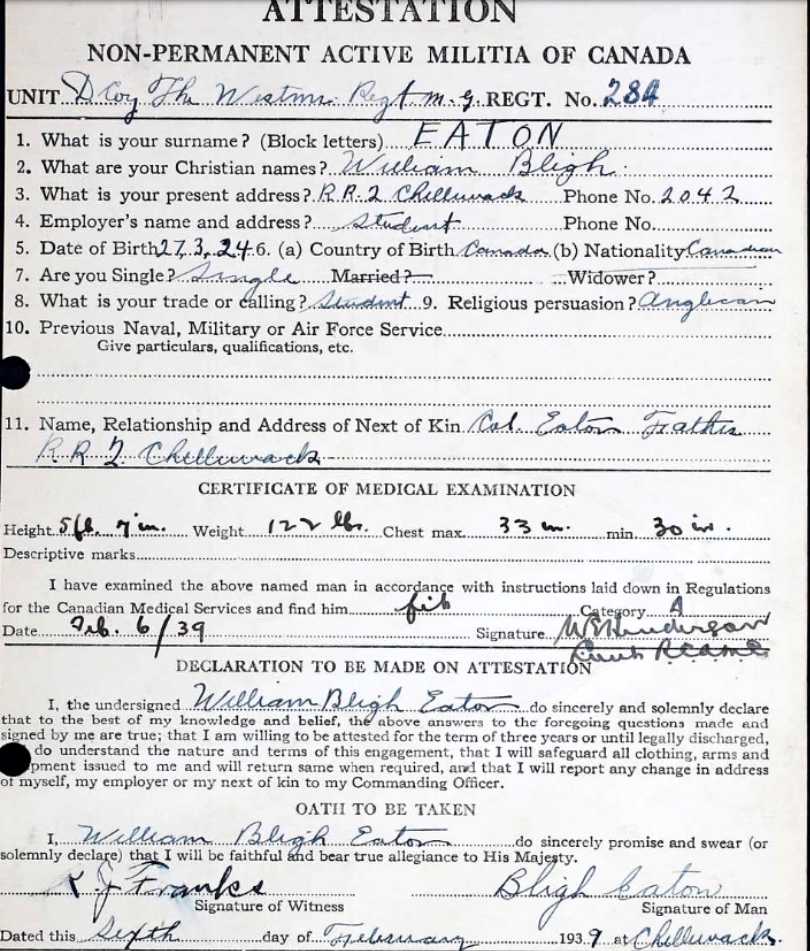 ATTESTATION
NON-PERMANENT ACTIVE MILITIA OF CANADA
UNIT D Coy The Westmr Regt M.G. REGT. No. 284
1. What is your surname? (Block letters) EATON
2. What are your Christian names? William Bligh
3. What is your present address? R.R.2 Chilliwack Phone No. 2042
4. Employer's name and address? Student Phone No.
5. Date of Birth 27.3.24 6. (a) Country of Birth Canada (b) Nationality Canadian
7. Are you Single? Single Married? Widower?
8. What is your trade or calling? Student 9. Religious persuasion? Anglican
10. Previous Naval, Military or Air Force Service
Give particulars, qualifications, etc.
11. Name, Relationship and Address of Next of Kin Col. Eaton Father
R.R 2 Chilliwack
CERTIFICATE OF MEDICAL EXAMINATION
Height 5 ft. 7 in. Weight 122 lbs. Chest max. 33 in. min. 30 in.
Descriptive marks
I have examined the above named man in accordance with instructions laid down in Regulations
for the Canadian Medical Services and find him fit Category A
Date Feb. 6/39 Signature W Henderson
DECLARATION TO BE MADE ON ATTESTATION
I, the undersigned William Bligh Eaton do sincerely and solemnly declare
that to the best of my knowledge and belief, the above answers to the foregoing questions made and
signed by me are true; that I am willing to be attested for the term of three years or until legally discharged,
do understand the nature and terms of this engagement, that I will safeguard all clothing, arms and
pment issued to me and will return same when required, and that I will report any change in address
of myself, my employer or my next of kin to my Commanding Officer.
OATH TO BE TAKEN
I, William Bligh Eaton do sincerely promise and swear (or
solemnly declare) that I will be faithful and bear true allegiance to His Majesty.
K J Franks Bligh Eaton
Signature of Witness Signature of Man
Dated this Sixth day of February 1939 at Chilliwack